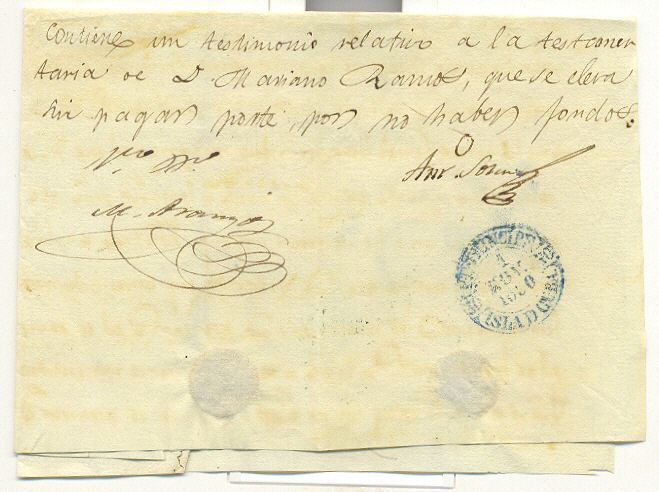 Contiene un testimonio relativo a la testamen
taria de D. Mariano Ramos, que se eleva
sin pagar porte, por no haber fondos.
Vto. Bno.
M. Arango
Anto.
1
NOV.
ISLA D CUBA